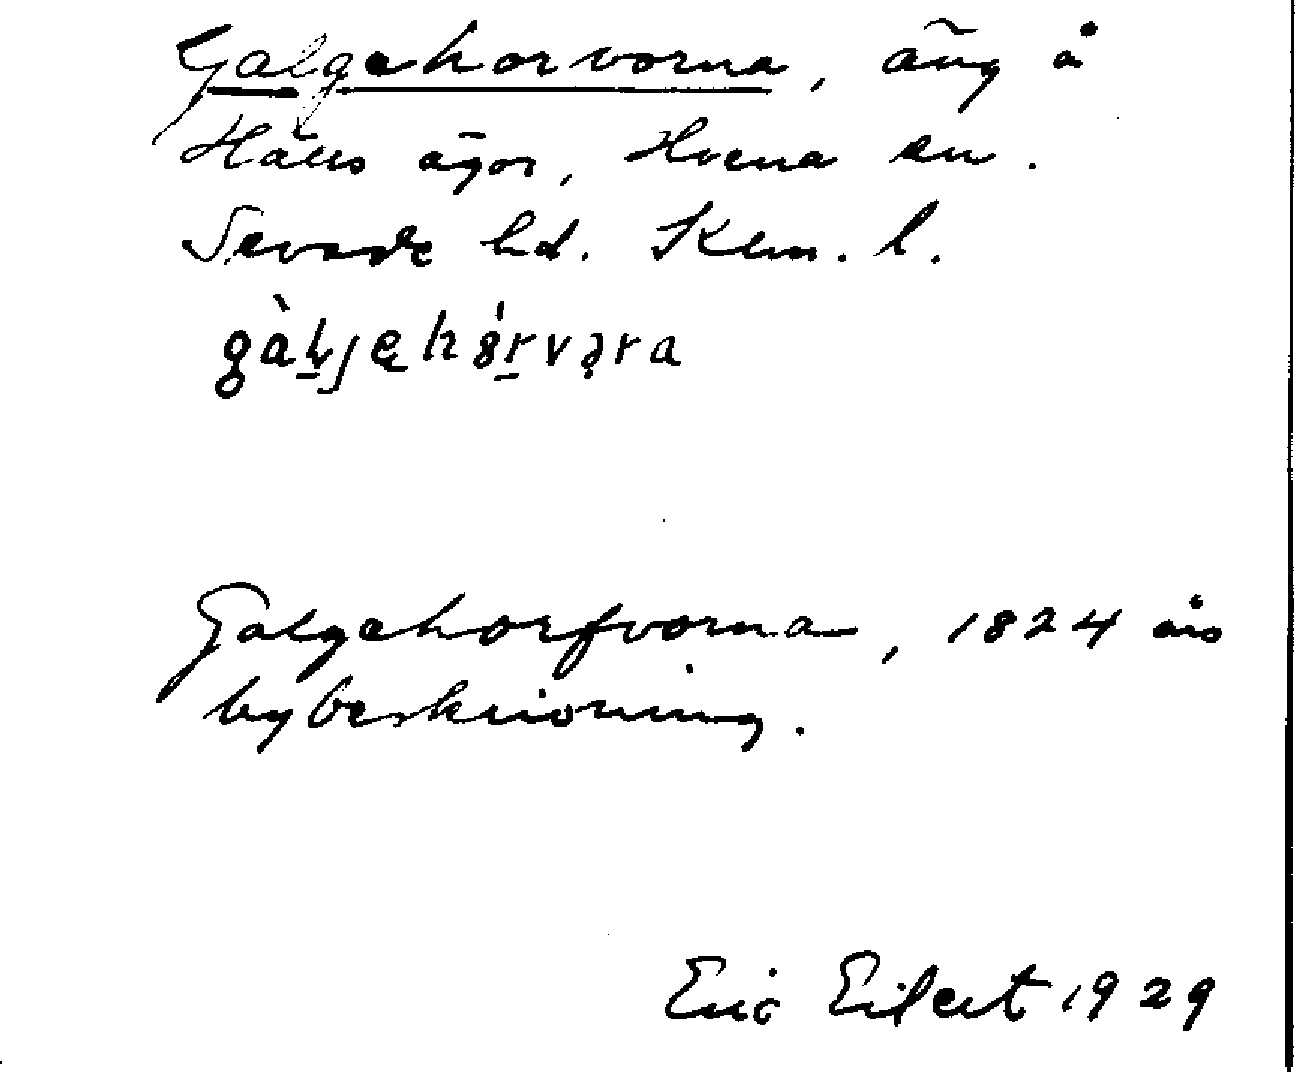 Galgehorvorna, äng å
Hälls ägor, Hvena sn.
Sevede hd. Klm. l.
gàljehórvəra
Galgehorfvorna, 1824 års
bybeskrivning.
Eric Eilert 1929